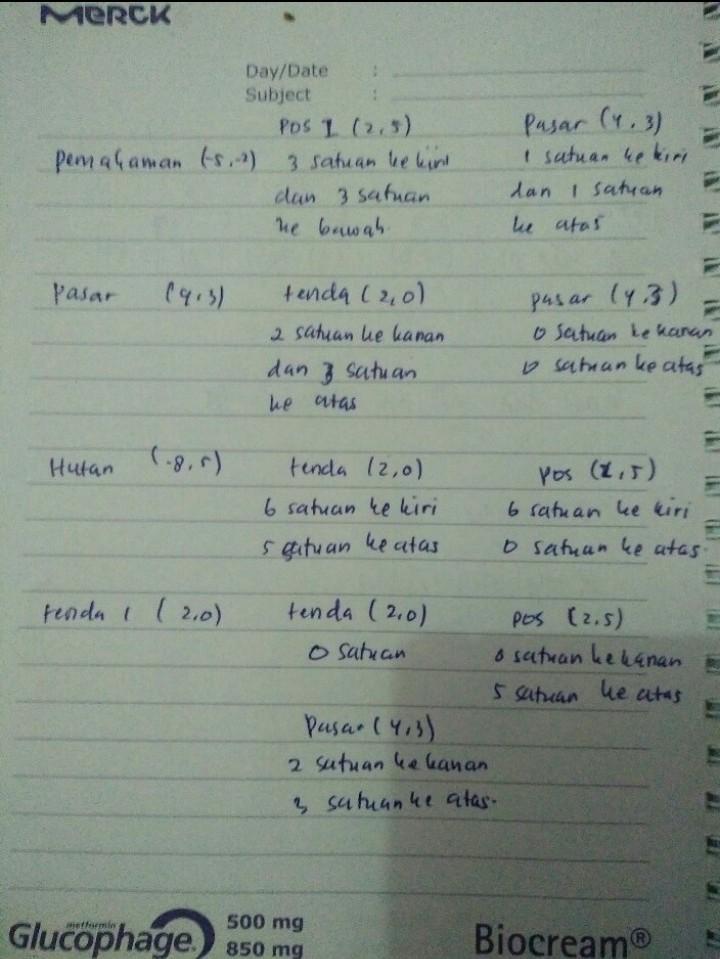 MERCK
Day/Date :
Subject :
Pos I (2,5)
Pasar (4,3)
Pemahaman (-5,-2)
3 satuan ke kiri
dan 3 satuan
ke bawah.
1 satuan ke kiri
dan 1 satuan
ke atas
Pasar (4,3)
tenda (2,0)
2 satuan ke kanan
dan 3 satuan
ke atas
pasar (4,3)
0 satuan ke kanan
0 satuan ke atas
Hutan (-8,5)
tenda (2,0)
6 satuan ke kiri
5 satuan ke atas
pos (2,5)
6 satuan ke kiri
0 satuan ke atas.
tenda 1 (2,0)
tenda (2,0)
0 satuan
pos (2,5)
0 satuan ke kanan
5 satuan ke atas
Pasar (4,3)
2 satuan ke kanan
3 satuan ke atas.
metformin
Glucophage®
500 mg
850 mg
Biocream®